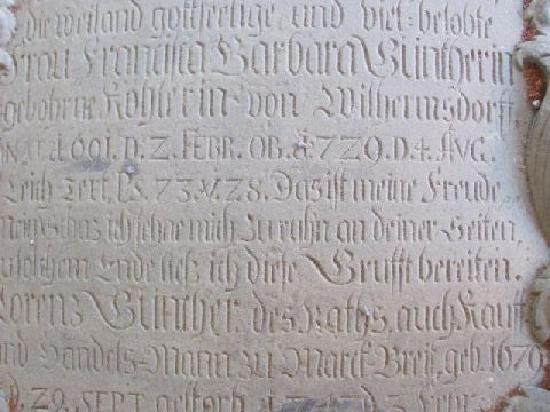 die weiland gottseelige und viel-belobte
Frau Francisca Barbara Güntherin
gebohrne Köhlerin von Wilhermsdorff
NAT. 1691. D. 2. FEBR. OB. 1729. D. 4. AUG.
Leich Text. Ps. 73. V. 28. Das ist meine Freude
ich sehne mich Zu ruhn an deiner Seiten,
Ende ließ ich diese Grufft bereiten.
Lorenz Günther, des Raths, auch Kauff
und Handels-Mann zu Marck Breit, geb. 1679
D. 29. SEPT. gestorb.